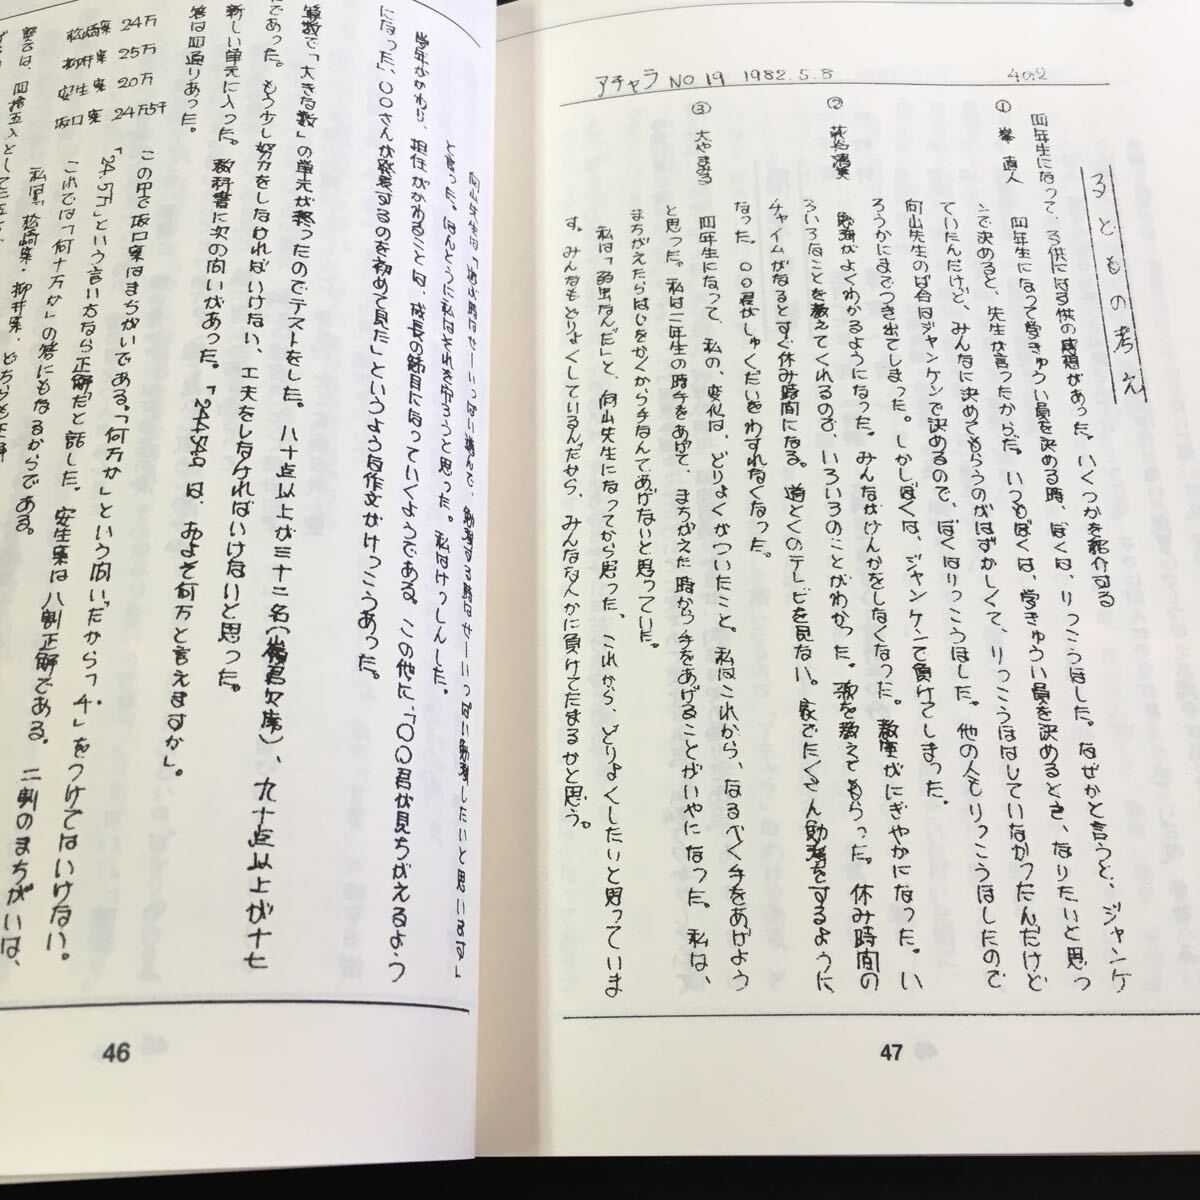 アチャラ NO 19 1982.5.8 4の2
子どもの考え
四年生になって、子供に対する感想があった。いくつかを紹介する
① 峯 直人
四年生になって学きゅうい員を決める時、ぼくは、りっこうほした。なぜかと言うと、ジャンケ
ンで決めると、先生が言ったからだ。いつもぼくは、学きゅうい員を決めるとき、なりたいと思っ
ていたんだけど、みんなに決めてもらうのがはずかしくて、りっこうほはしていなかったんだけど
向山先生のば合はジャンケンで決めるので、ぼくはりっこうほした。他の人もりっこうほしたので
ろうかにまでつき出てしまった。しかしぼくは、ジャンケンで負けてしまった。
②
勉強がよくわかるようになった。みんながけんかをしなくなった。教室がにぎやかになった。い
ろいろなことを教えてくれるので、いろいろのことがわかった。歌を教えてもらった。休み時間の
チャイムがなるとすぐ休み時間になる。道とくのテレビを見ない。家でたくさん勉強をするように
なった。〇〇君がしゅくだいをわすれなくなった。
③ 大やまみる
四年生になって、私の、変化は、どりょくがついたこと。私はこれから、なるべく手をあげよう
と思った。私は二年生の時手をあげて、まちがえた時から手をあげることがいやになった。私は、
まちがえたらはじをかくから手なんてあげないと思っていた。
私は「弱虫なんだ」と、向山先生になってから思った。これから、どりょくしたいと思っていま
す。みんなもどりょくしているんだから、みんななんかに負けてたまるかと思う。
47
向山先生は「遊ぶ時はせーいっぱい遊んで、勉強する時はせーいっぱい勉強したいと思います」
と言った。ほんとうに私はそれを守ろうと思った。私はけっしんした。
学年がかわり、担任がかわることは、成長の節目になっていくようである。この他に、「〇〇君が見ちがえるようつ
になった」、〇〇さんが発表するのを初めて見た」というような作文がけっこうあった。
算数で「大きな数」の単元が終ったのでテストをした。八十点以上が三十二名(欠席)、九十点以上が十七
であった。もう少し努力をしなければいけない、工夫をしなければいけないと思った。
新しい単元に入った。教科書に次の問いがあった。「24万5千は、およそ何万と言えますか」。
答は四通りあった。
松崎案 24万
柳井案 25万
安生案 20万
坂口案 24万5千
この中で坂口案はまちがいである。「何万か」という問いだから「千」をつけてはいけない。
「24.5万」という言い方なら正解だと話した。安生案は八割正解である。二割のまちがいは、
これでは「何十万か」の答にもなるからである。
46